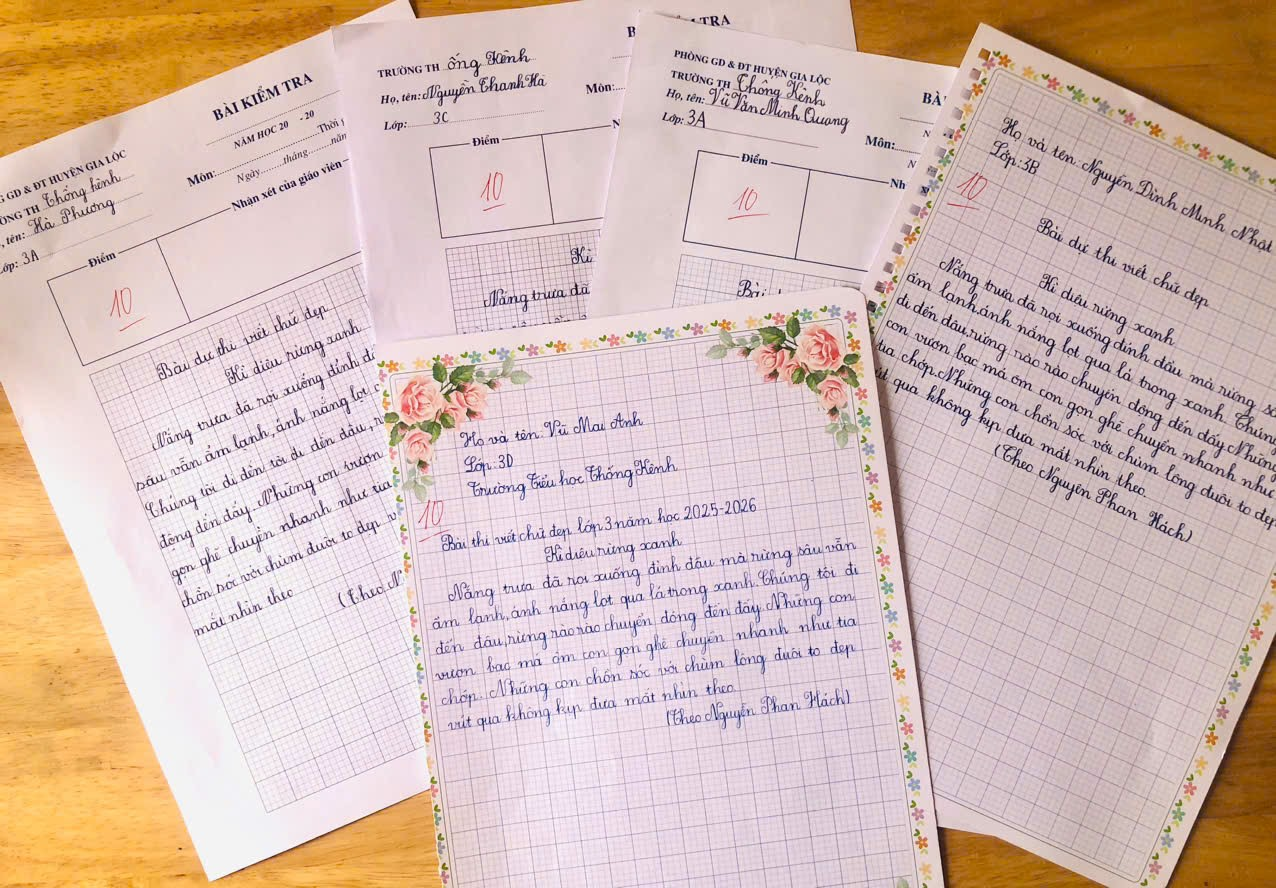 BÀI KIỂM TRA
NĂM HỌC 20 - 20
Môn: Thời
Ngày tháng năm
GD & ĐT HUYỆN GIA LỘC
TH Thống Kênh
tên: Hà Phương
Lớp: 3A
Điểm
Nhận xét của giáo viên
10
Bài dự thi viết chữ đẹp
Kì diệu rừng xanh
Nắng trưa đã rọi xuống đỉnh
sâu vẫn ẩm lạnh, ánh nắng lọt
Chúng tôi đi đến tôi đi đến đâu,
động đến đấy. Những con vượn
gọn ghẽ chuyền nhanh như tia
chồn sóc với chùm đuôi to đẹp
mắt nhìn theo
(Theo
TRƯỜNG TH ống Kênh
Họ, tên: Nguyễn Thanh Hà
Môn:
Lớp: 3C
Điểm
10
Kì
Nắng trưa đã
TRA
PHÒNG GD & ĐT HUYỆN GIA LỘC
TRƯỜNG TH Thống Kênh
Họ, tên: Vũ Văn Minh Quang
Lớp: 3A
Môn:
Điểm
10
Bài
Họ và tên: Nguyễn Đình Minh Nhật
Lớp: 3B
10
Bài dự thi viết chữ đẹp
Kì diệu rừng xanh
Nắng trưa đã rọi xuống đỉnh đầu mà rừng
ẩm lạnh, ánh nắng lọt qua lá trong xanh. Chúng
đi đến đâu, rừng rào rào chuyển động đến đấy. Những
con vượn bạc má ôm con gọn ghẽ chuyền nhanh như
tia chớp. Những con chồn sóc với chùm lông đuôi to đẹp
qua không kịp đưa mắt nhìn theo.
(Theo Nguyễn Phan Hách)
Họ và tên: Vũ Mai Anh
Lớp: 3D
Trường Tiểu học Thống Kênh
10
Bài thi viết chữ đẹp lớp 3 năm học 2025-2026
Kì diệu rừng xanh
Nắng trưa đã rọi xuống đỉnh đầu mà rừng sâu vẫn
ẩm lạnh, ánh nắng lọt qua lá trong xanh. Chúng tôi đi
đến đâu, rừng rào rào chuyển động đến đấy. Những con
vượn bạc má ôm con gọn ghẽ chuyền nhanh như tia
chớp. Những con chồn sóc với chùm lông đuôi to đẹp
vút qua không kịp đưa mắt nhìn theo.
(Theo Nguyễn Phan Hách)